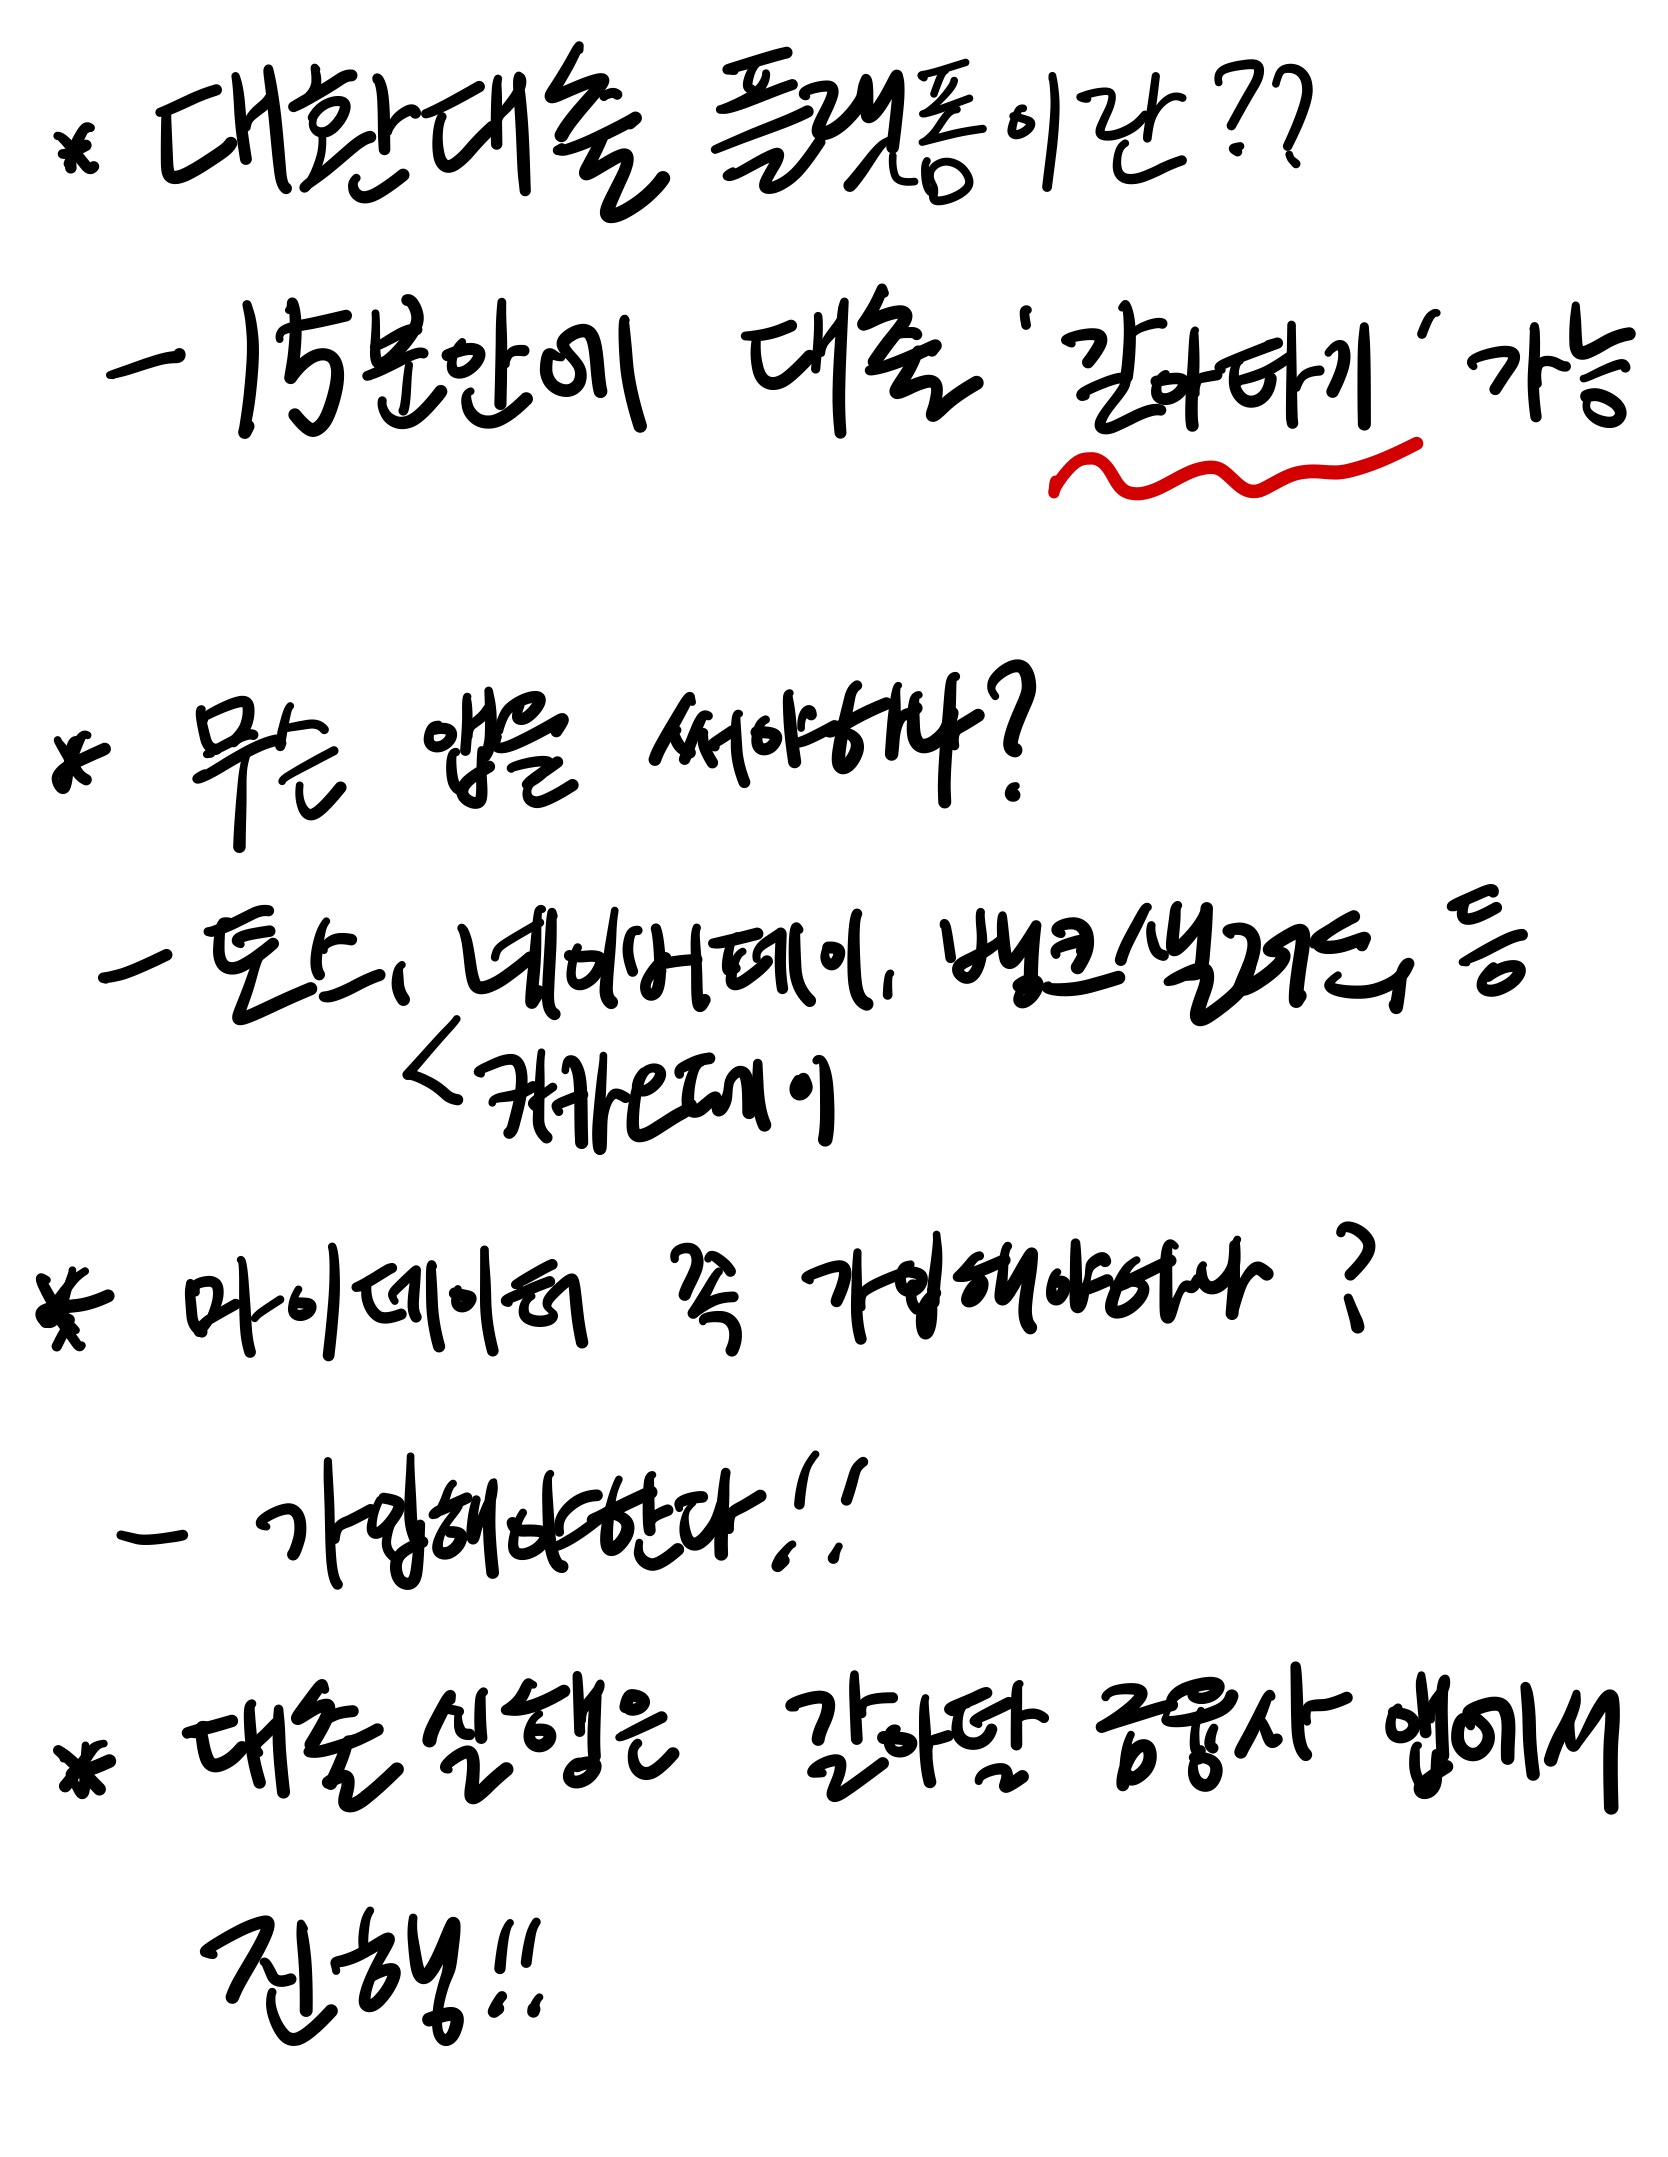 * 대환대출 플랫폼이란??
- 15분안에 대출 '갈아타기' 가능
* 무슨 앱을 써야하나?
- 토스, 네이버페이, 뱅크샐러드, 등
< 카카오페이
* 마이데이터 꼭 가입해야하나?
- 가입해야한다!!
* 대출 실행은 갈아탈 금융사 앱에서
진행!!